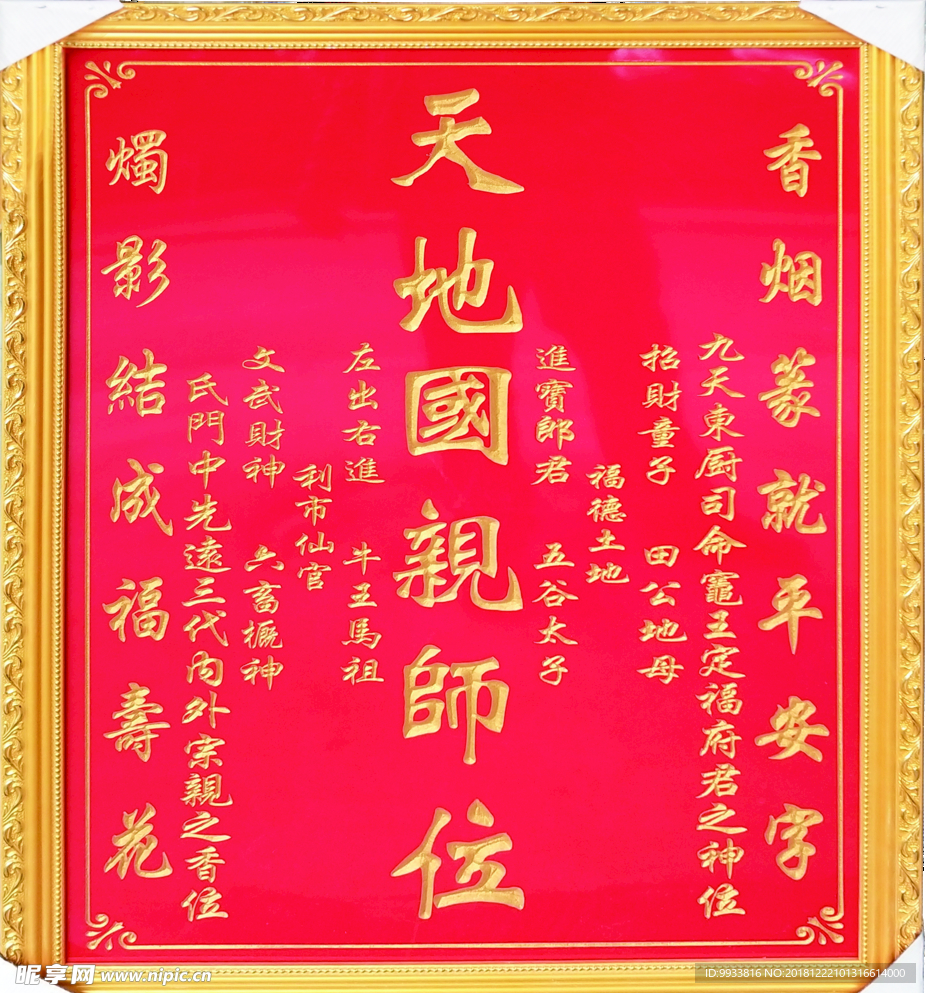 香烟篆就平安字
九天東厨司命竈王定福府君之神位
招財童子 田公地母
福德土地
進寶郎君 五谷太子
天地國親師位
左出右進 牛王馬祖
利市仙官
文武財神 六畜概神
氏門中先遠三代内外宗親之香位
燭影結成福壽花
昵享网 www.nipic.cn
ID:9933816 NO:20181222101316614000